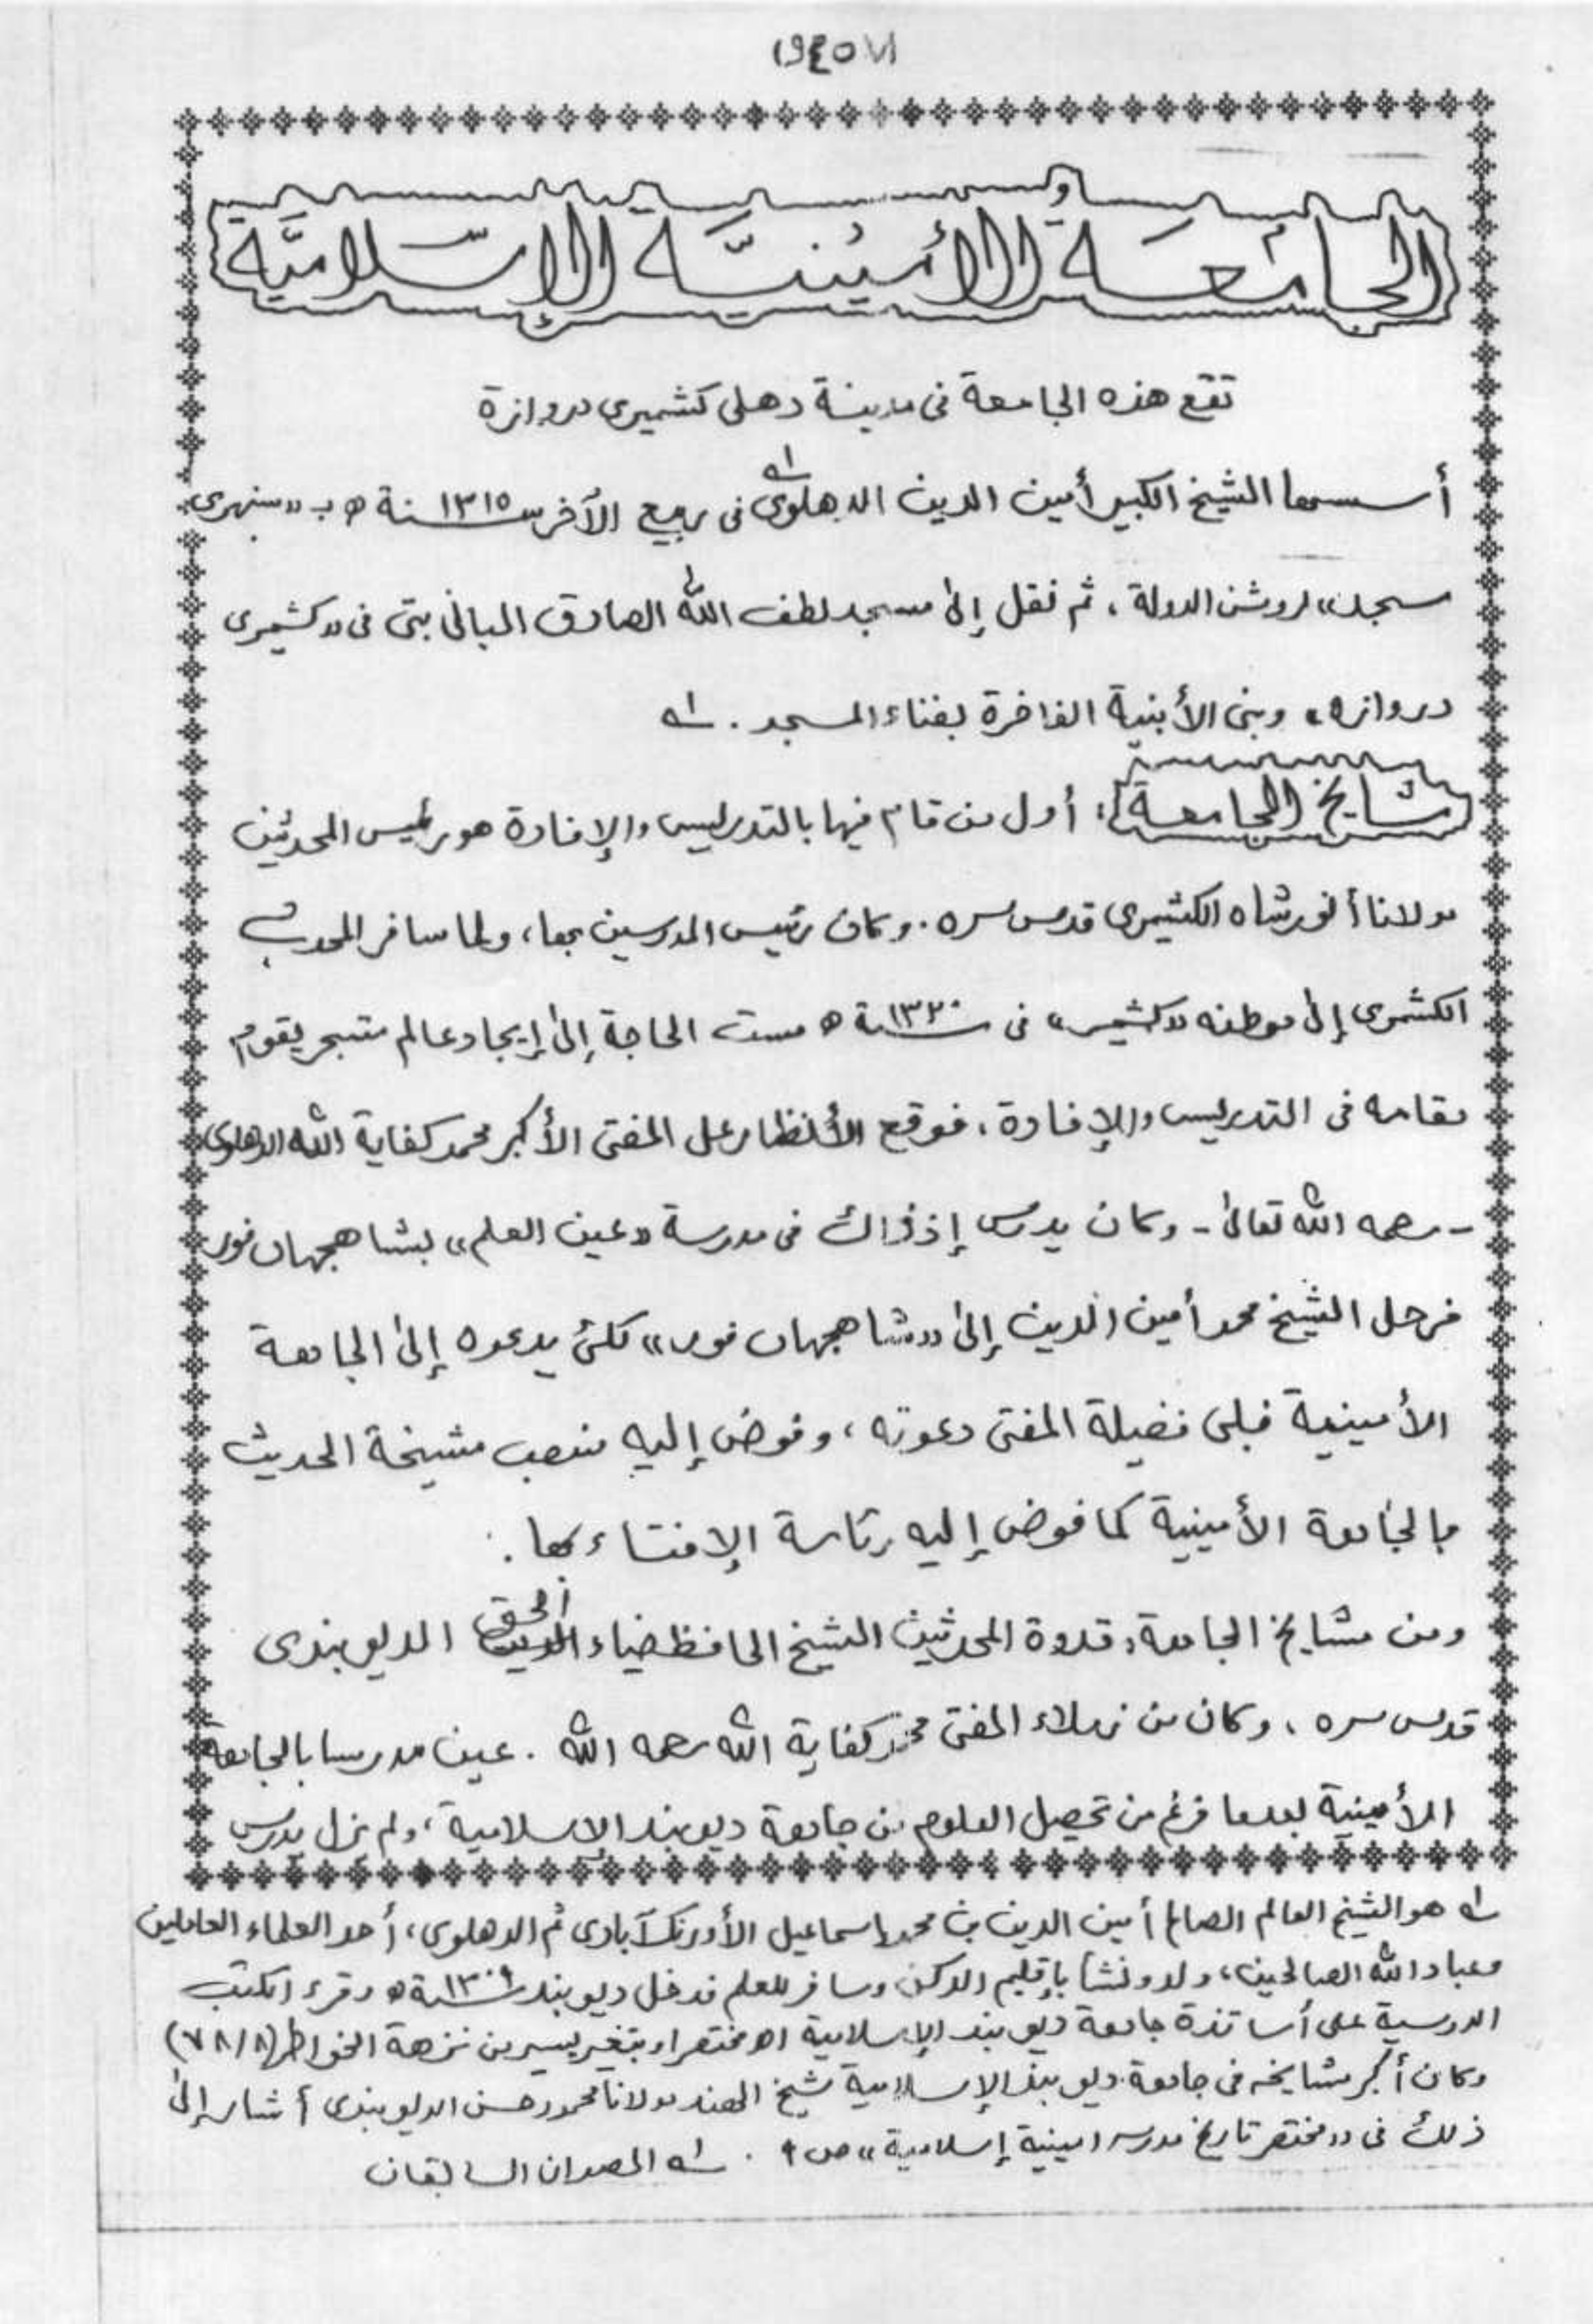 الجَامعَة الأمينيَّة الإسْلاميَّة
تقع هذه الجامعة فى مدينة دهلى كشميرى دروازة
أسسها الشيخ الكبير أمين الدين الدهلوى اه فى ربيع الآخر سنة ١٣١٥ ه ب «سنهرى
مسجد» لروشن الدولة، ثم نقل إلى مسجد لطف الله الصادق البانى بتى فى «كشميرى
دروازه» وبنى الأبنية الفاخرة بفناء المسجد. اه
مشايخ الجامعة: أول من قام فيها بالتدريس والإفادة هو رئيس المحدثين
مولانا أنورشاه الكشميرى قدس سره. وكان رئيس المدرسين بها، ولما سافر المحدث
الكشمرى إلى موطنه «كشمير» فى سنة ١٣٢٠ ه مست الحاجة إلى إيجاد عالم متبحر يقوم
مقامه فى التدريس والإفادة، فوقع الأنظار على المفتى الأكبر محمد كفاية الله الدهلوى
- رحمه الله تعالى - وكان يدرس إذ ذاك فى مدرسة «عين العلم» بشاهجهان فور
فرحل الشيخ محمد أمين الدين إلى «شاهجهان فور» لكى يدعوه إلى الجامعة
الأمينية فلبى فضيلة المفتى دعوته، وفوض إليه منصب مشيخة الحديث
بالجامعة الأمينية كما فوض إليه رئاسة الإفتاء بها.
ومن مشايخ الجامعة: قدوة المحدثين الشيخ الحافظ ضياء الحق الديوبندى
قدس سره، وكان من زملاء المفتى محمد كفاية الله رحمه الله. عين مدرسا بالجامعة
الأمينية بعدما فرغ من تحصيل العلوم من جامعة ديوبند الإسلامية، ولم يزل يدرس
اه هو الشيخ العالم الصالح أمين الدين بن محمد إسماعيل الأورنك آبادى ثم الدهلوى، أحد العلماء العاملين
وعباد الله الصالحين، ولد ونشأ بإقليم الدكن وسافر للعلم فدخل ديوبند سنة ١٣٠٩ ه وقرء الكتب
الدرسية على أساتذة جامعة ديوبند الإسلامية اه مختصرا وبتغير يسير من نزهة الخواطر (٧٨/٨)
وكان أكبر مشايخه فى جامعة ديوبند الإسلامية شيخ الهند مولانا محمود حسن الديوبندى أشار إلى
ذلك فى «مختصر تاريخ مدرسه امينية إسلامية» ص ٩. اه المصدران السابقان